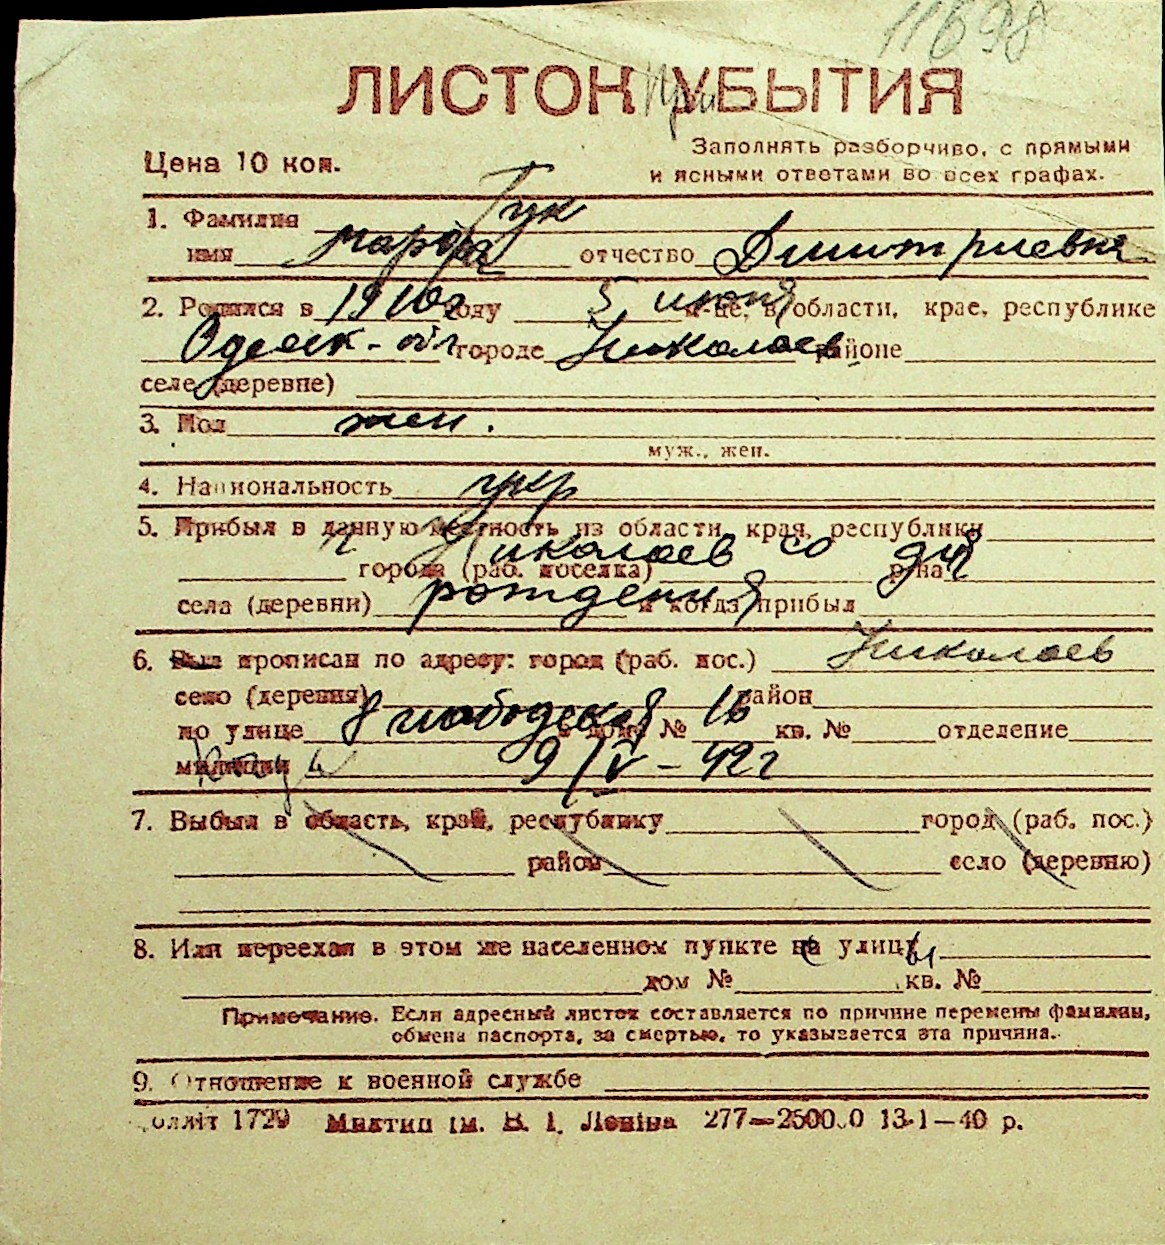 11698
ЛИСТОК УБЫТИЯ
При
Цена 10 коп.
Заполнять разборчиво, с прямыми
и ясными ответами во всех графах.
1. Фамилия Гук
имя Марфа отчество Дмитриевна
2. Родился в 1910г году 5 июня м-це, в области, крае, республике
Одесск-обл городе Николаев районе
селе (деревне)
3. Пол жен.
муж., жен.
4. Национальность укр
5. Прибыл в данную местность из области, края, республики
г Николаев со дня
города (раб. поселка) р-на
села (деревни) рождения и когда прибыл
6. Был прописан по адресу: город (раб. пос.) Николаев
село (деревня) район
по улице 8 слободская дом № 16 кв. № отделение
милиции 9/IV-42г
7. Выбыл в область, край, республику город (раб. пос.)
район село (деревню)
8. Или переехал в этом же населенном пункте на улицу
дом № кв. №
Примечание. Если адресный листок составляется по причине перемены фамилии,
обмена паспорта, за смертью, то указывается эта причина.
9. Отношение к военной службе
1729 ім. В. І. Леніна 277—25000 13-1—40 р.